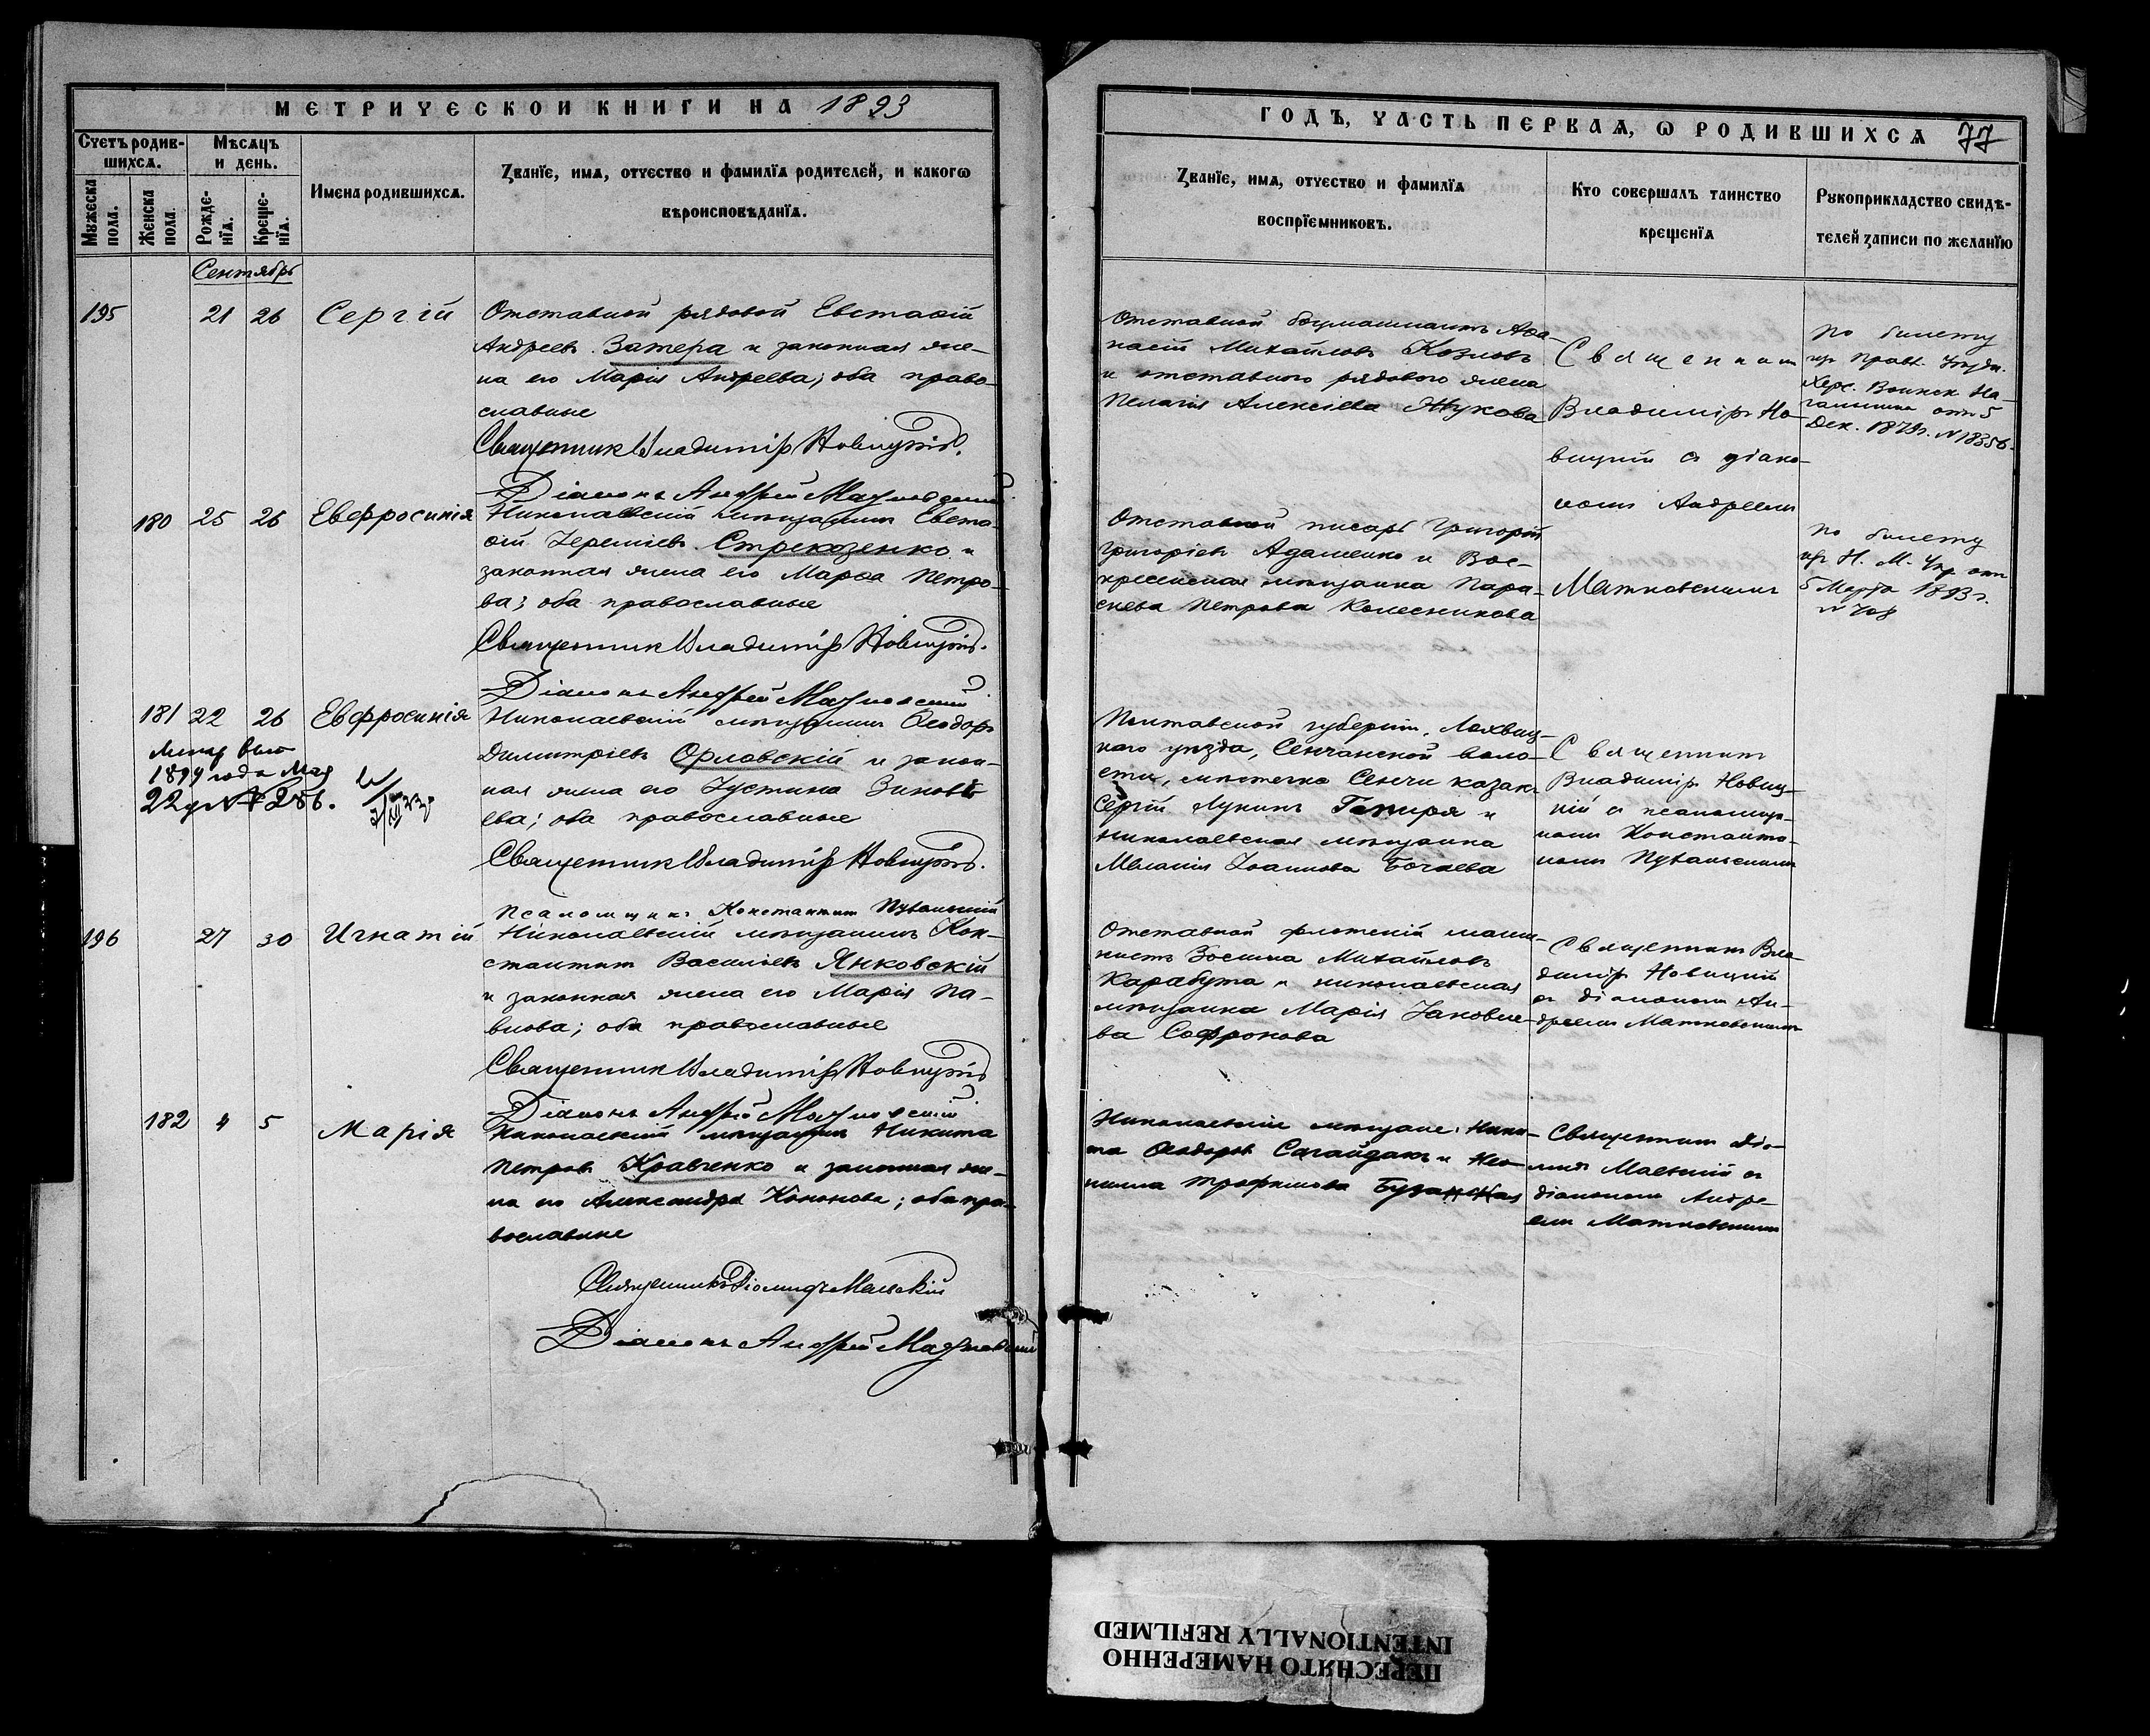 МЕТРИЧЕСКОЙ КНИГИ НА 1893
Счетъ родив-
шихся.
Мѣсяцъ
и день.
Мужеска
пола.
Женска
пола.
Рожде-
нїя.
Креще-
нїя.
Имена родившихся.
Званїе, имя, отчество и фамилїя родителей, и какогѡ
вѣроисповѣданїя.
Сентябрь
195 21 26 Сергій
Отставной рядовой Евстафій
Андреевъ Затера и законная же-
на его Марія Андреева; оба право-
славные
Священникъ Владиміръ Новицкій.
Діаконъ Андрей Матковскій
180 25 26 Евфросинія
Николаевскій мѣщанинъ Евста-
фій Іереміевъ Стрекозенко и
законная жена его Марфа Петро-
ва; оба православные
Священникъ Владиміръ Новицкій.
Діаконъ Андрей Матковскій
181 22 26 Евфросинія
1899 года Мая
22 д № 256.
Николаевскій мѣщанинъ Ѳеодоръ
Димитріевъ Орловскій и закон-
ная жена его Іустина Зиновь
ева; оба православные
Священникъ Владиміръ Новицкій.
Псаломщикъ Константинъ
196 27 30 Игнатій
Николаевскій мѣщанинъ Кон-
стантинъ Васильевъ Янковскій
и законная жена его Марія Па-
влова; оба православные
Священникъ Владиміръ Новицкій
Діаконъ Андрей Матковскій
182 4 5 Марія
Николаевскій мѣщанинъ Никита
Петровъ Кравченко и законная же-
на его Александра Кононова; оба пра-
вославные
Священникъ Діомидъ Маевскій
Діаконъ Андрей Матковскій
ГОДЪ, ЧАСТЬ ПЕРВАЯ, Ѡ РОДИВШИХСЯ 77
Званїе, имя, отчество и фамилїя
воспрїемниковъ.
Кто совершалъ таинство
крещенїя
Рукоприкладство свидѣ-
телей записи по желанїю
Отставной боцманматъ Афа-
насій Михайловъ Козловъ
и отставного рядового жена
Пелагія Алексіева Жукова
Священникъ
Владиміръ Но-
вицкій съ діако-
номъ Андреемъ
Матковскимъ
По билету
Херс. Воинск. На-
чальника отъ 5
Дек. 1879г. № 18356.
Отставной писарь Григорій
Григоріевъ Адаменко и Вос-
кресенская мѣщанка Пара-
скева Петрова Колесникова
По билету
Н. М. Упр. отъ
5 Марта 1893 г.
№ 708
Полтавской губерніи, Лохвиц-
каго уѣзда, Сенчанской воло-
сти, мѣстечка Сенчи казакъ
Сергій Лукинъ и
николаевская мѣщанка
Меланія Іоаннова Бочаева
Священникъ
Владиміръ Новиц-
кій съ псаломщи-
комъ Константи-
номъ
Отставной флотскій маши-
нистъ Зосима Михайловъ
Карабута и николаевская
мѣщанка Марія Іаковле-
ва Софронова
Священникъ Вла-
диміръ Новицкій
съ діакономъ Ан-
дреемъ Матковскимъ
Николаевскіе мѣщане: Ники-
та Ѳеодоровъ Сагайдакъ и Нео-
нилла Трофимова
Священникъ Діо-
мидъ Маевскій съ
діакономъ Андре-
емъ Матковскимъ
ПЕРЕСНЯТО НАМЕРЕННО
INTENTIONALLY REFILMED